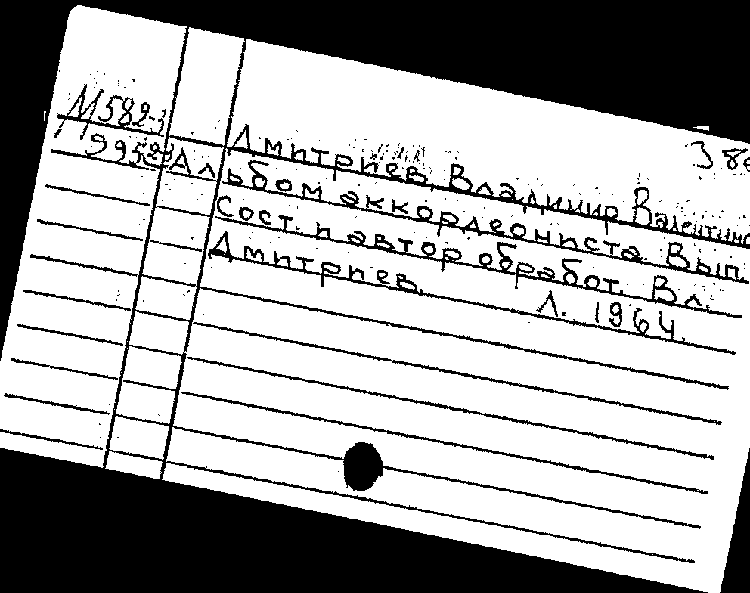 М582-3
995
Дмитриев, Владимир Валентино
Альбом аккордеониста Вып.
Сост. и автор обработ. Вл.
Дмитриев. Л. 1964.